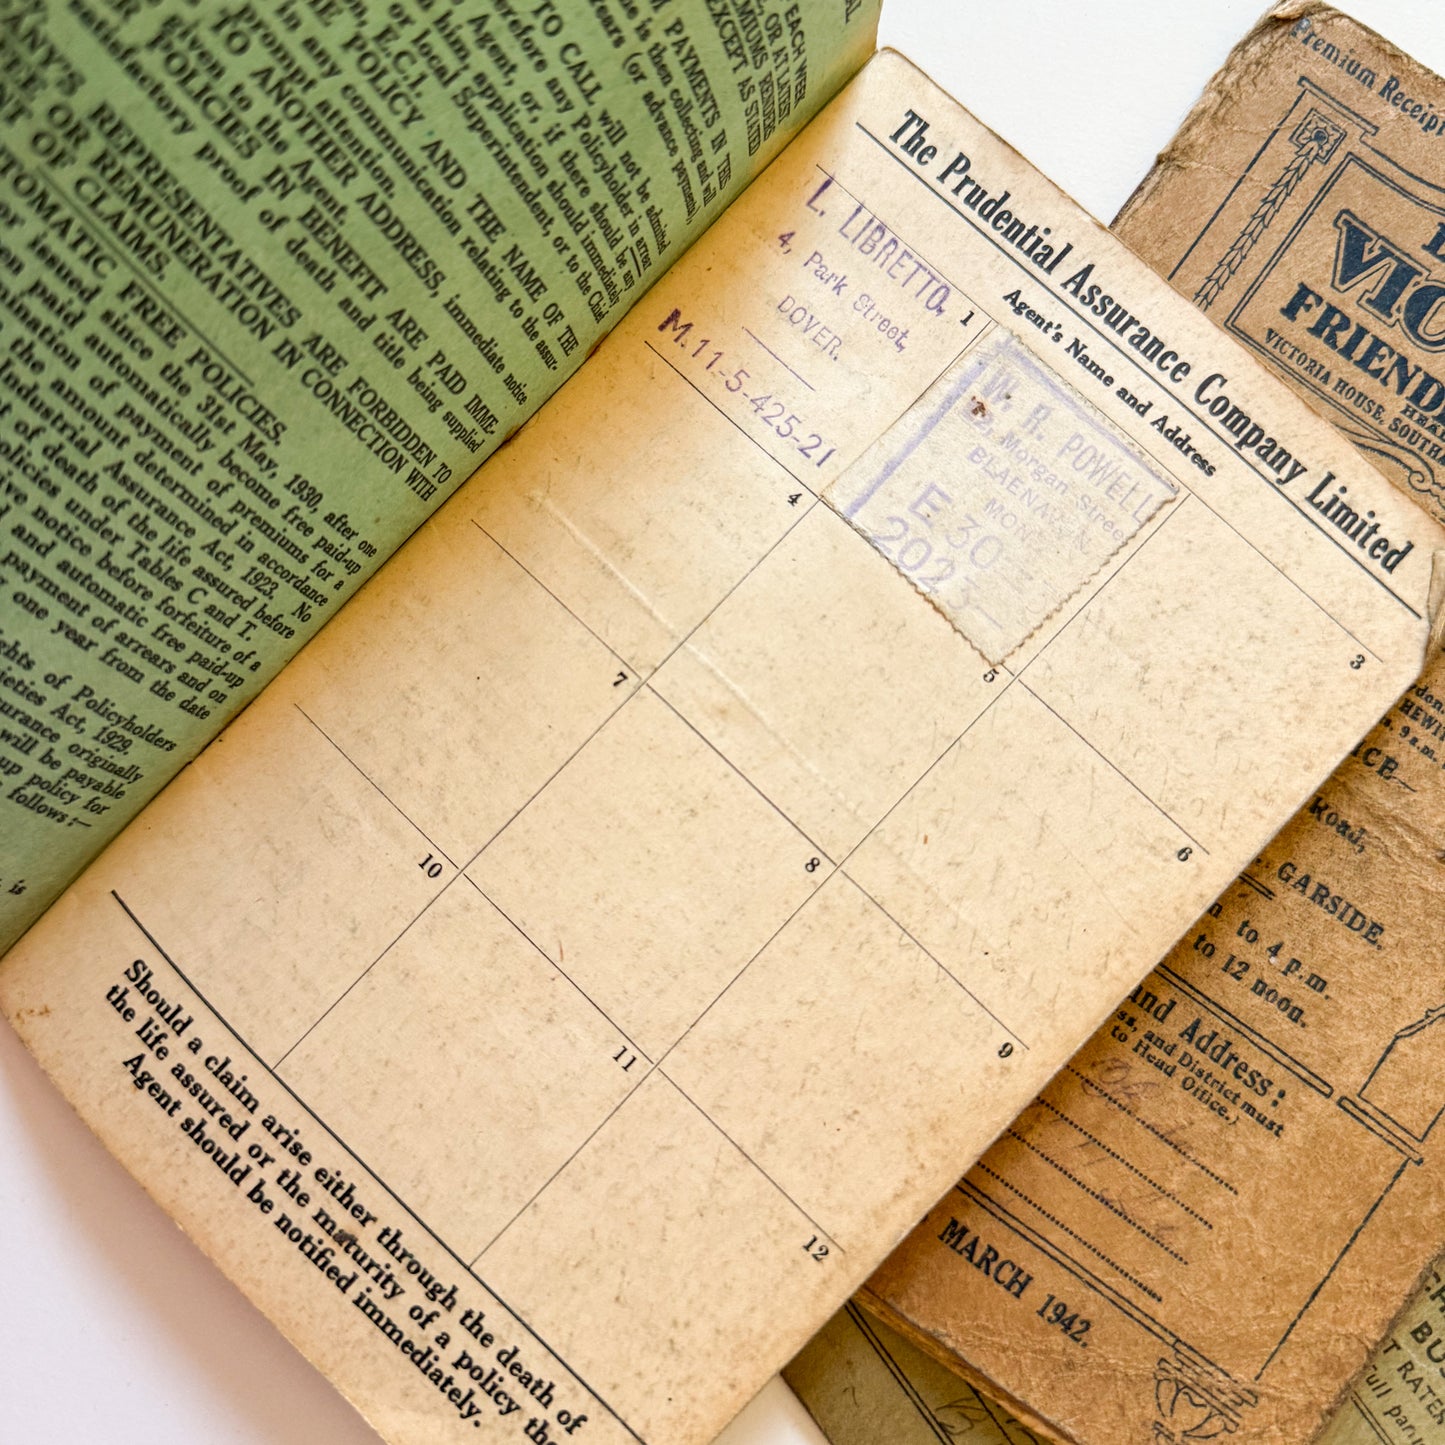 EACH WEEK
OR AT LATEST
PREMIUMS RENDERS
EXCEPT AS STATED
PAYMENTS IN THE
is then collecting and will
years (or advance payments),
TO CALL will not be admitted
before any Policyholder in arrear
Agent, or, if there should be any
him, application should immediately
or local Superintendent, or to the Chief
E.C.1.
THE POLICY AND THE NAME OF THE
in any communication relating to the assur-
prompt attention.
TO ANOTHER ADDRESS, immediate notice
given to the Agent.
POLICIES IN BENEFIT ARE PAID IMME-
satisfactory proof of death and title being supplied
COMPANY'S REPRESENTATIVES ARE FORBIDDEN TO
OR REMUNERATION IN CONNECTION WITH
OF CLAIMS.
AUTOMATIC FREE POLICIES.
or issued since the 31st May, 1930, after one
been paid automatically become free paid-up
termination of payment of premiums for a
the amount determined in accordance
Industrial Assurance Act, 1923. No
of death of the life assured before
policies under Tables C and T.
notice before forfeiture of a
and automatic free paid-up
payment of arrears and on
one year from the date
Rights of Policyholders
Societies Act, 1929.
assurance originally
will be payable
up policy for
follows:—
is
The Prudential Assurance Company Limited
Agent's Name and Address
L. LIBRETTO,
4, Park Street,
DOVER.
M.11-5-425-21
1
W. R. POWELL
Morgan Street
BLAENAVON
MON
E 30
2023
3
4
5
6
7
8
9
10
11
12
Should a claim arise either through the death of
the life assured or the maturity of a policy the
Agent should be notified immediately.
Premium Receipt
VIC
FRIEND
VICTORIA HOUSE, SOUTHA
HEA
HEWIT
9 a.m.
ICE—
Road,
GARSIDE.
to 4 p.m.
to 12 noon.
and Address:
and District must
to Head Office.)
MARCH 1942.
BUS
T RATEN
Full par